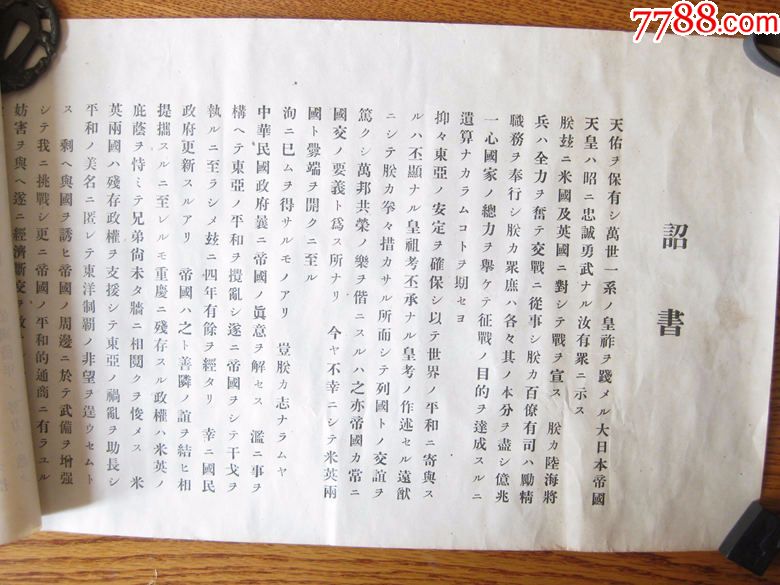 7788.com
詔書
天佑ヲ保有シ萬世一系ノ皇祚ヲ踐メル大日本帝國
天皇ハ昭ニ忠誠勇武ナル汝有衆ニ示ス
朕玆ニ米國及英國ニ對シテ戰ヲ宣ス 朕カ陸海將
兵ハ全力ヲ奮テ交戰ニ從事シ朕カ百僚有司ハ勵精
職務ヲ奉行シ朕カ眾庶ハ各々其ノ本分ヲ盡シ億兆
一心國家ノ總力ヲ擧ケテ征戰ノ目的ヲ達成スルニ
遺算ナカラムコトヲ期セヨ
抑々東亞ノ安定ヲ確保シ以テ世界ノ平和ニ寄與ス
ルハ丕顯ナル皇祖考丕承ナル皇考ノ作述セル遠猷
ニシテ朕カ拳々措カサル所而シテ列國トノ交誼ヲ
篤クシ萬邦共榮ノ樂ヲ偕ニスルハ之亦帝國カ常ニ
國交ノ要義ト爲ス所ナリ 今ヤ不幸ニシテ米英兩
國ト釁端ヲ開クニ至ル
洵ニ已ムヲ得サルモノアリ 豈朕カ志ナラムヤ
中華民國政府曩ニ帝國ノ眞意ヲ解セス 濫ニ事ヲ
構ヘテ東亞ノ平和ヲ攪亂シ遂ニ帝國ヲシテ干戈ヲ
執ルニ至ラシメ玆ニ四年有餘ヲ經タリ 幸ニ國民
政府更新スルアリ 帝國ハ之ト善隣ノ誼ヲ結ヒ相
提攜スルニ至レルモ重慶ニ殘存スル政權ハ米英ノ
庇蔭ヲ恃ミテ兄弟尙未タ牆ニ相鬩クヲ悛メス 米
英兩國ハ殘存政權ヲ支援シテ東亞ノ禍亂ヲ助長シ
平和ノ美名ニ匿レテ東洋制覇ノ非望ヲ逞ウセムト
ス 剩ヘ與國ヲ誘ヒ帝國ノ周邊ニ於テ武備ヲ增强
シテ我ニ挑戰シ更ニ帝國ノ平和的通商ニ有ラユル
妨害ヲ與ヘ遂ニ經濟斷交ヲ